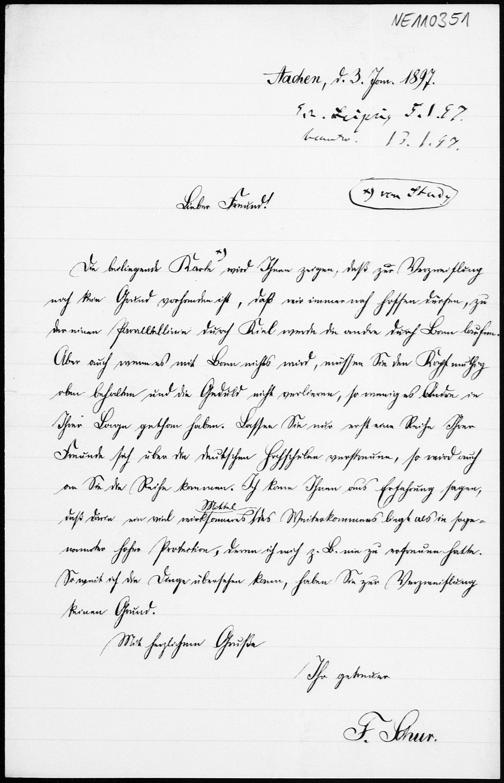 NE110351
Aachen, d. 3. Jan. 1897.
Leipzig 5.1.97.
beantw. 13.1.97.
x) von Study
Lieber Freund!
Die beiliegende Karte x) wird Ihnen zeigen, daß zur Verzweiflung
noch kein Grund vorhanden ist, daß wir immer noch hoffen dürfen, zu
der einen Parallellinie durch Kiel werde die andre durch Bonn laufen.
Aber auch wenn es mit Bonn nichts wird, müssen Sie den Kopf
oben behalten und die Geduld nicht verlieren, so wenig es Andre in
Ihrer Lage gethan haben. Lassen Sie nur erst eine Reihe Ihrer
Freunde sich über die deutschen Hochschulen so wird auch
an Sie die Reihe kommen. Ich kann Ihnen aus Erfahrung sagen,
daß darin ein viel wirksameres Mittel des Weiterkommens liegt als in soge-
nannter hoher Protection, deren ich mich z. B. nie zu erfreuen hatte.
Soweit ich die Dinge übersehen kann, haben Sie zur Verzweiflung
keinen Grund.
Mit herzlichem Gruße
Ihr getreuer
F. Schur.